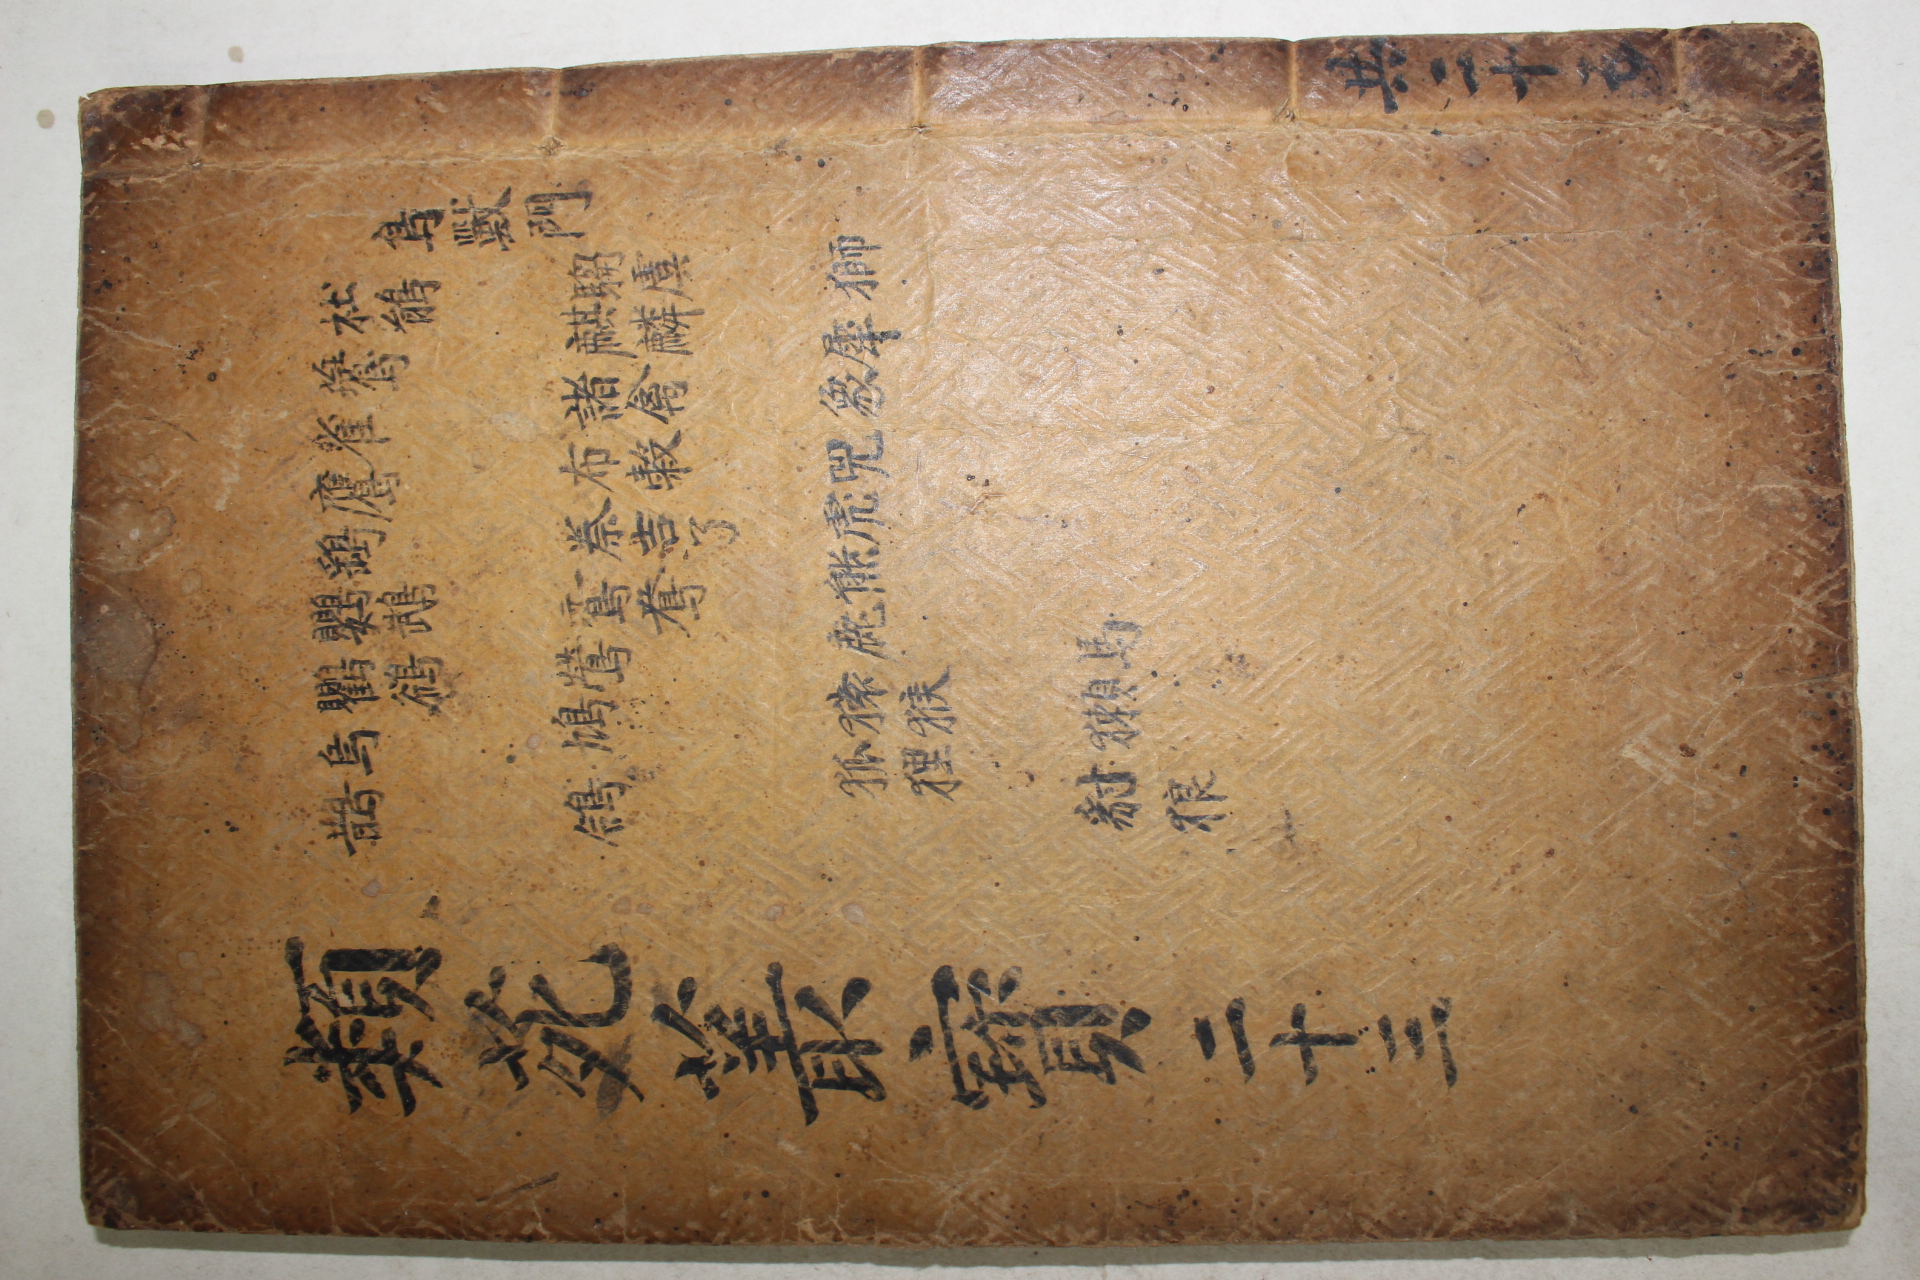 類苑叢寶 二十三
鳥獸門
杜鵑
鷰
雀
鷹
鷂
鸚鵡
鸜鵒
烏
鵲
騶虞
麒麟
諸禽
布穀
秦吉了
鴛鴦
鶯
鳩
鴿
獅
犀
象
兕
虎
熊
鹿
猿猴
狐狸
馬
獺
豺狼
共二十五